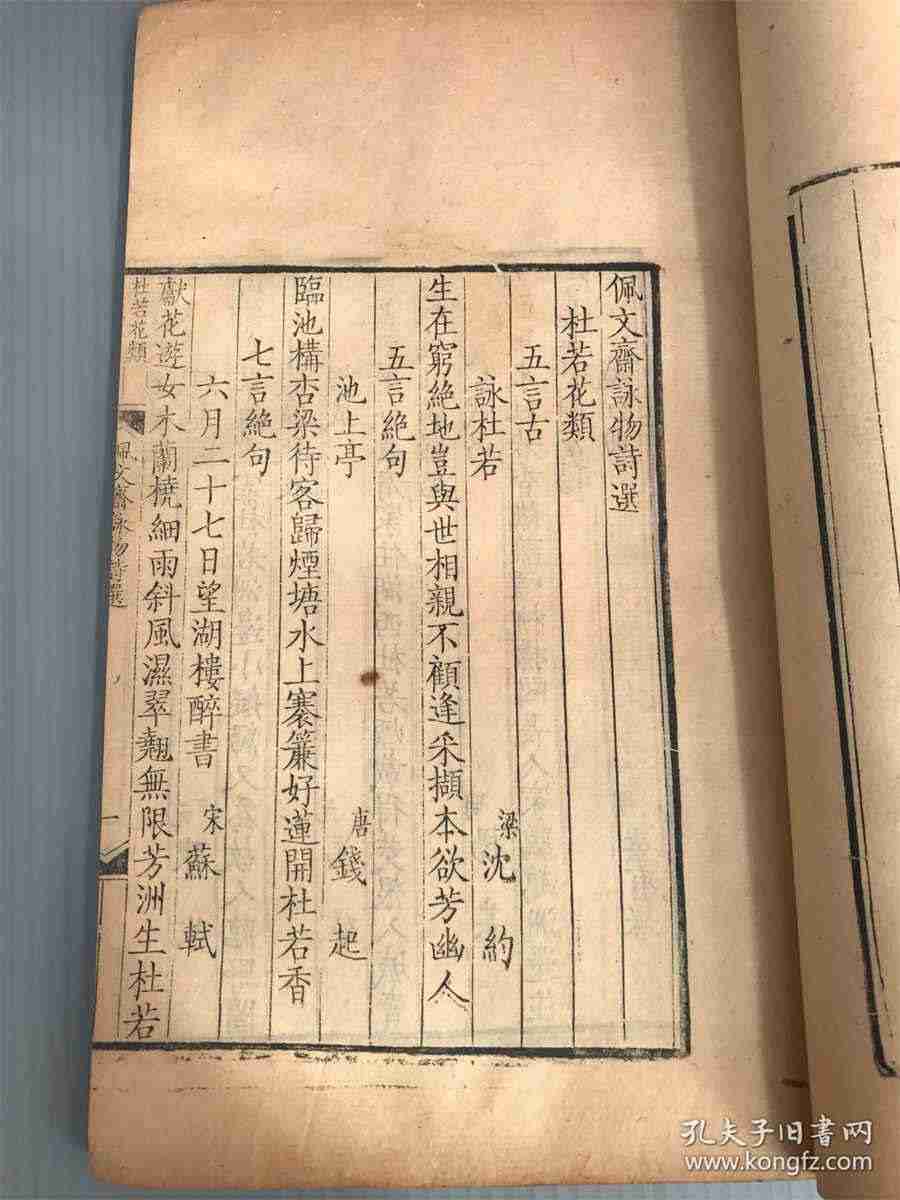 佩文齋詠物詩選
杜若花類
五言古
詠杜若 梁 沈約
生在窮絶地豈與世相親不顧逢采擷本欲芳幽人
五言絶句
池上亭 唐 錢起
臨池構杏梁待客歸煙塘水上褰簾好蓮開杜若香
七言絶句
六月二十七日望湖樓醉書 宋 蘇軾
獻花遊女木蘭橈細雨斜風濕翠翹無限芳洲生杜若
杜若花類 佩文齋詠物詩選 一
孔夫子旧书网
www.kongfz.com